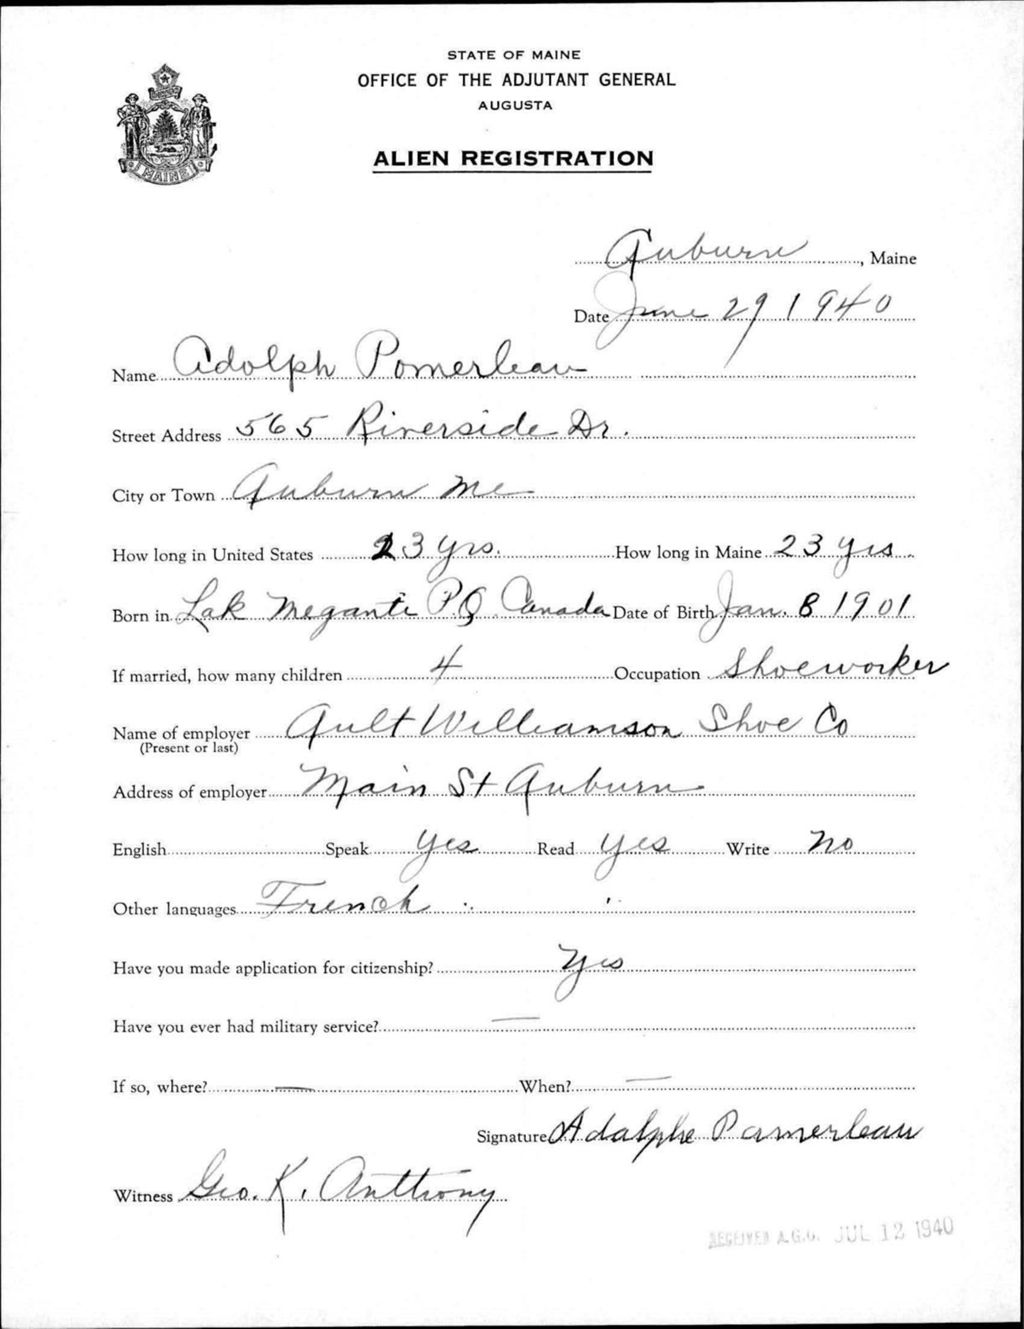 STATE OF MAINE
OFFICE OF THE ADJUTANT GENERAL
AUGUSTA
MAINE
ALIEN REGISTRATION
Auburn, Maine
Date June 29 1940
Name Adolph Pomerleau
Street Address 565 Riverside Dr.
City or Town Auburn Me
How long in United States 23 yrs. How long in Maine 23 yrs.
Born in Lak Megantic P.Q Canada Date of Birth Jan. 8 1901
If married, how many children 4 Occupation Shoeworker
Name of employer Ault Williamson Shoe Co
(Present or last)
Address of employer Main St Auburn
English Speak Yes Read Yes Write No
Other languages French " "
Have you made application for citizenship? Yes
Have you ever had military service? —
If so, where? — When? —
Signature Adalphe Pamerleau
Witness Geo. K. Anthony
RECEIVED A.G.O. JUL 12 1940